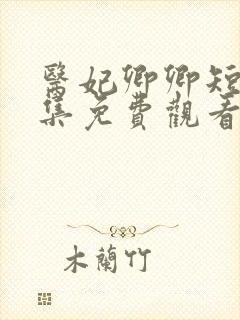 醫妃卿卿短
集免費觀看
木蘭竹